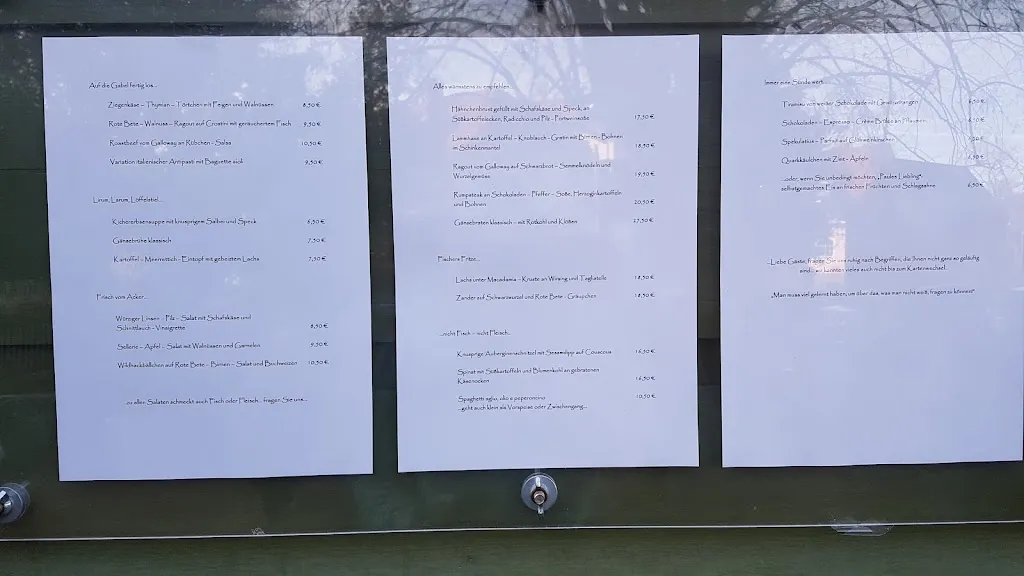 Auf die Gabel fertig los...
Ziegenkäse – Thymian – Törtchen mit Feigen und Walnüssen 8,50 €
Rote Bete – Walnuss – Ragout auf Crostini mit geräuchertem Fisch 9,50 €
Roastbeef vom Galloway an Rübchen - Salsa 10,50 €
Variation italienischer Antipasti mit Baguette aioli 9,50 €
Lirum, Larum, Löffelstiel...
Kichererbsensuppe mit knusprigem Salbei und Speck 6,50 €
Gänsebrühe klassisch 7,50 €
Kartoffel – Meerrettich - Eintopf mit gebeiztem Lachs 7,50 €
Frisch vom Acker...
Würziger Linsen – Pilz – Salat mit Schafskäse und
Schnittlauch - Vinaigrette 8,50 €
Sellerie – Apfel – Salat mit Walnüssen und Garnelen 9,50 €
Wildhackbällchen auf Rote Bete – Birnen – Salat und Buchweizen 10,50 €
...zu allen Salaten schmeckt auch Fisch oder Fleisch... fragen Sie uns...
Alles wärmstens zu empfehlen...
Hähnchenbrust gefüllt mit Schafskäse und Speck, an
Süßkartoffelecken, Radicchio und Pilz - Portweinsoße 17,50 €
an Kartoffel – Knoblauch - Gratin mit Birnen - Bohnen
im Schinkenmantel 18,50 €
Ragout vom Galloway auf Schwarzbrot – Semmelknödeln und
Wurzelgemüse 19,50 €
Rumpsteak an Schokoladen – Pfeffer – Soße, Herzoginkartoffeln
und Bohnen 20,50 €
Gänsebraten klassisch – mit Rotkohl und Klößen 27,50 €
Fischers Fritze...
Lachs unter Macadamia – Kruste an Wirsing und Tagliatelle 18,50 €
Zander auf Schwarzwurzel und Rote Bete - Gräupchen 18,50 €
...nicht Fisch – nicht Fleisch...
Knusprige Auberginenschnitzel mit Sesamdipp auf Couscous 16,50 €
Spinat mit Süßkartoffeln und Blumenkohl an gebratenen
Käsenocken 16,50 €
Spaghetti aglio, olio e peperoncino 10,50 €
...geht auch klein als Vorspeise oder Zwischengang...
Immer eine Sünde wert...
Tiramisu von weißer Schokolade mit Gewürzorangen 6,50 €
Schokoladen – Espresso – Crème Brûlée an Pflaumen
Spekulatius – Parfait auf Glühweinkirschen
Quarkkäulchen mit Zimt - Äpfeln 6,50 €
...oder, wenn Sie unbedingt möchten, „Paules Liebling“-
selbstgemachtes Eis an frischen Früchten und Schlagsahne 6,50 €
...Liebe Gäste, fragen Sie uns ruhig nach Begriffen, die Ihnen nicht ganz so geläufig
sind... wir kannten vieles auch nicht bis zum Kartenwechsel.
„Man muss viel gelernt haben, um über das, was man nicht weiß, fragen zu können!“